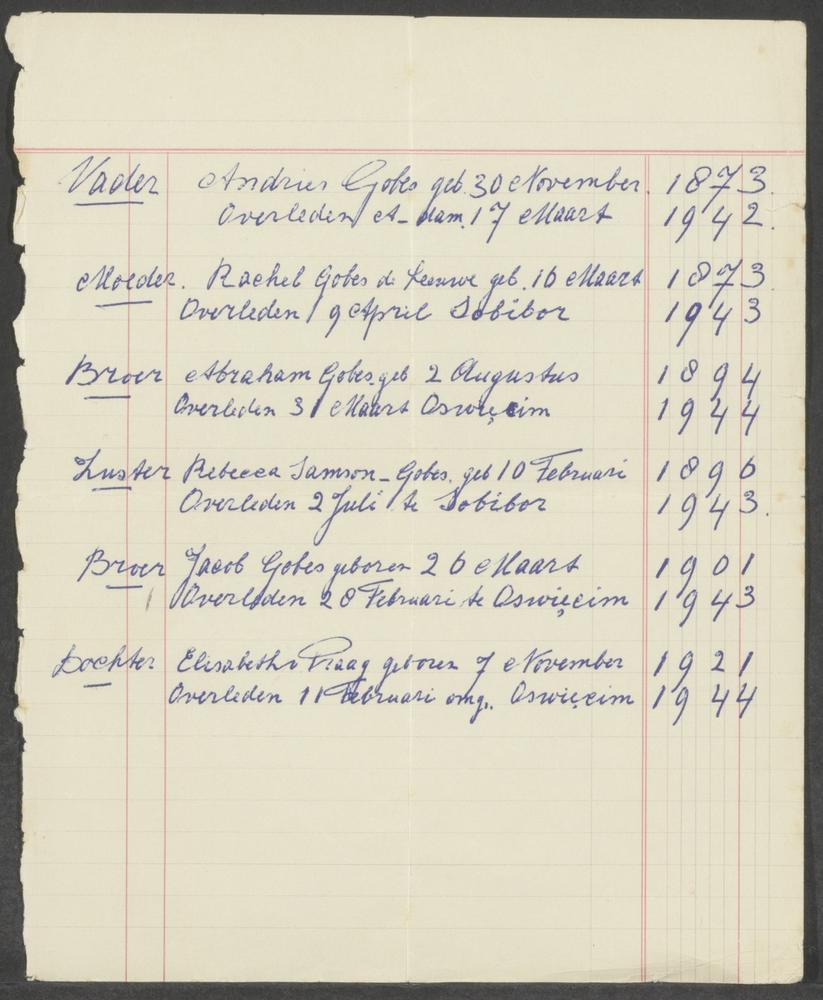 Vader Andries Gobes geb. 30 November. 1873.
Overleden A-dam. 17 Maart 1942.
Moeder. Rachel Gobes de Leeuwe geb. 16 Maart 1873
Overleden 9 April Sobibor 1943
Broer Abraham Gobes. geb 2 Augustus 1894
Overleden 31 Maart Oswięcim 1944
Zuster Rebecca Samson-Gobes. geb 10 Februari 1896
Overleden 2 Juli te Sobibor 1943.
Broer Jacob Gobes geboren 26 Maart 1901
Overleden 28 Februari te Oswięcim 1943
Dochter Elisabeth v Praag geboren 7 November 1921
Overleden 11 Februari omg. Oswięcim 1944